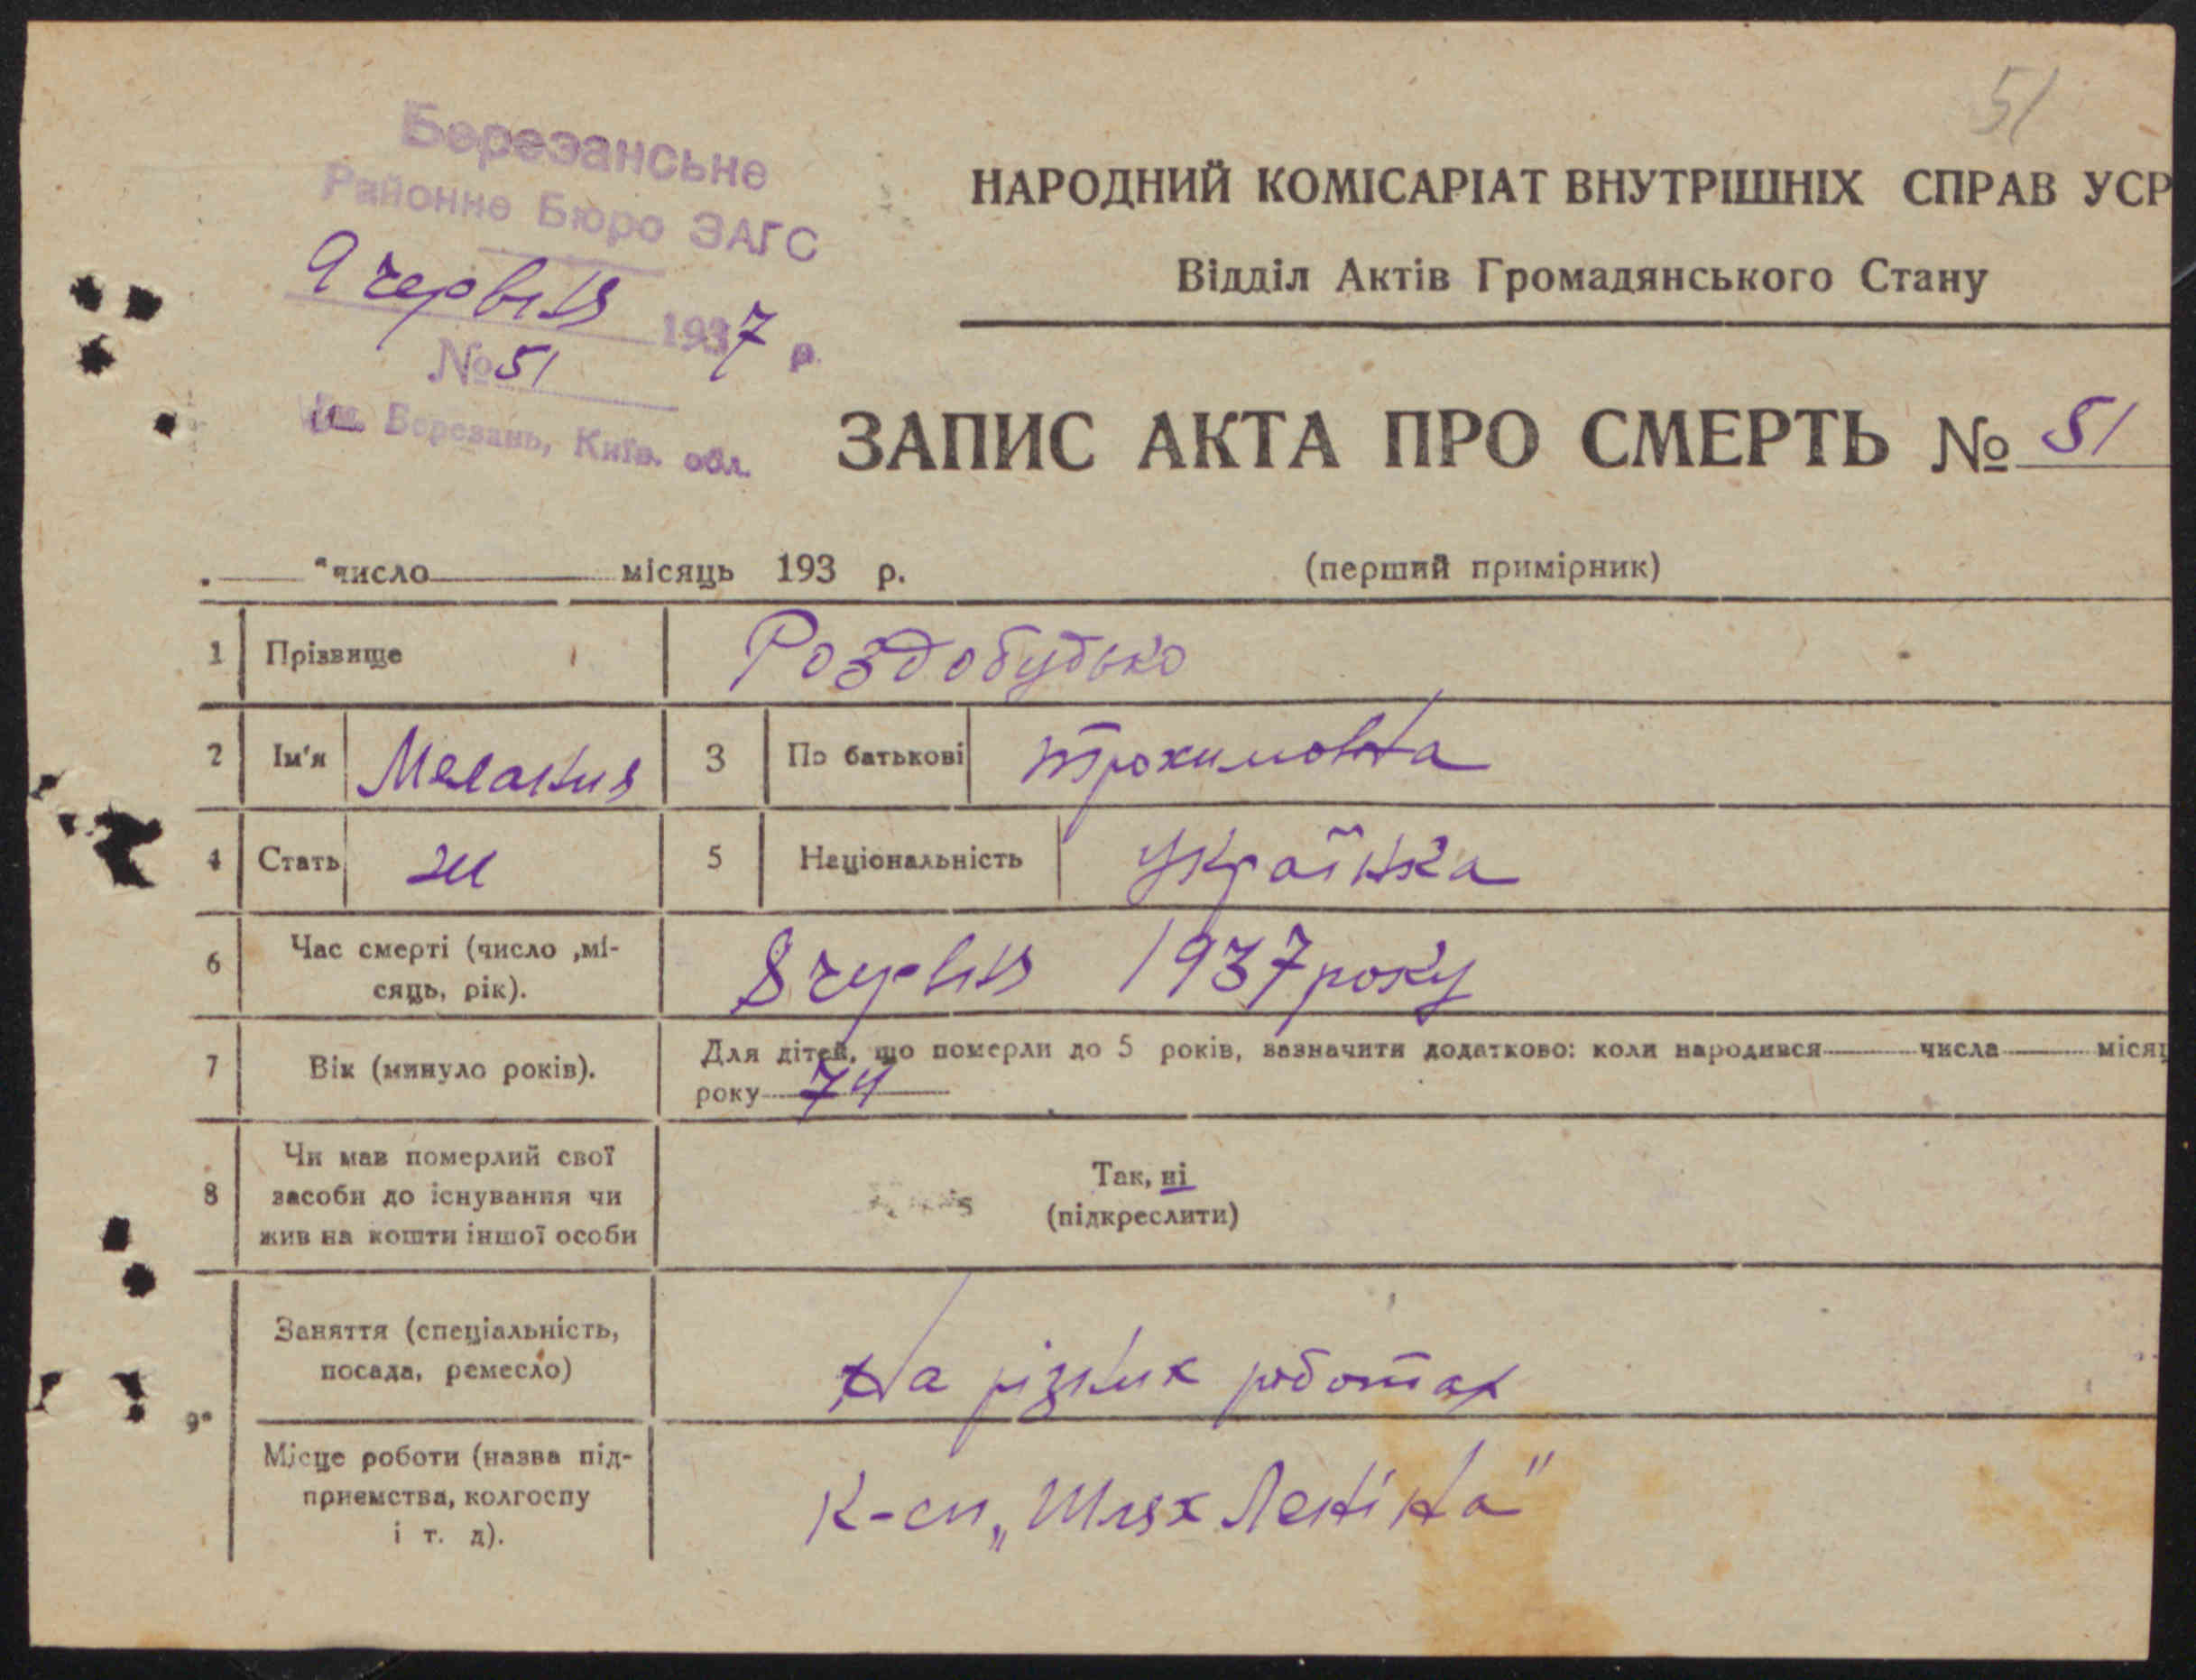 51
Березанське
Районне Бюро ЗАГС
9 червня 1937 р.
№ 51
Березань, Київ. обл.
НАРОДНИЙ КОМІСАРІАТ ВНУТРІШНІХ СПРАВ УСР
Відділ Актів Громадянського Стану
ЗАПИС АКТА ПРО СМЕРТЬ № 51
число місяць 193 р.
(перший примірник)
1 Прізвище Роздобудько
2 Ім'я Мелания 3 По батькові Трохимовна
4 Стать ж 5 Національність Українка
6 Час смерті (число ,мі-
сяць, рік).
8 червня 1937 року
7 Вік (минуло років).
Для дітей, що померли до 5 років, зазначити додатково: коли народився числа місяц
року 74
8 Чи мав померлий свої
засоби до існування чи
жив на кошти іншої особи
Так, ні
(підкреслити)
9 Заняття (спеціальність,
посада, ремесло)
на різних роботах
Місце роботи (назва під-
приємства, колгоспу
і т. д).
К-сп „Шлях Леніна"